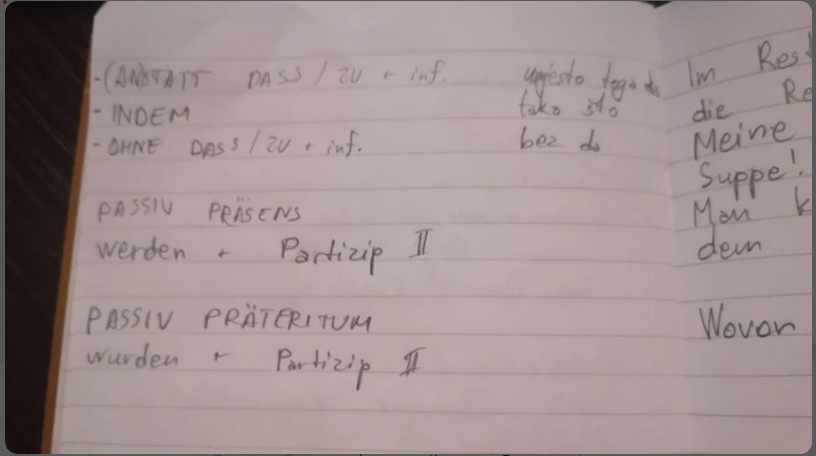 -(ANSTATT DASS / ZU + inf. umjesto toga da
- INDEM tako što
- OHNE DASS / ZU + inf. bez da
PASSIV PRÄSENS
werden + Partizip II
PASSIV PRÄTERITUM
wurden + Partizip II
Im Rest
die Re
Meine
Suppe!
Man k
dem
Wovon